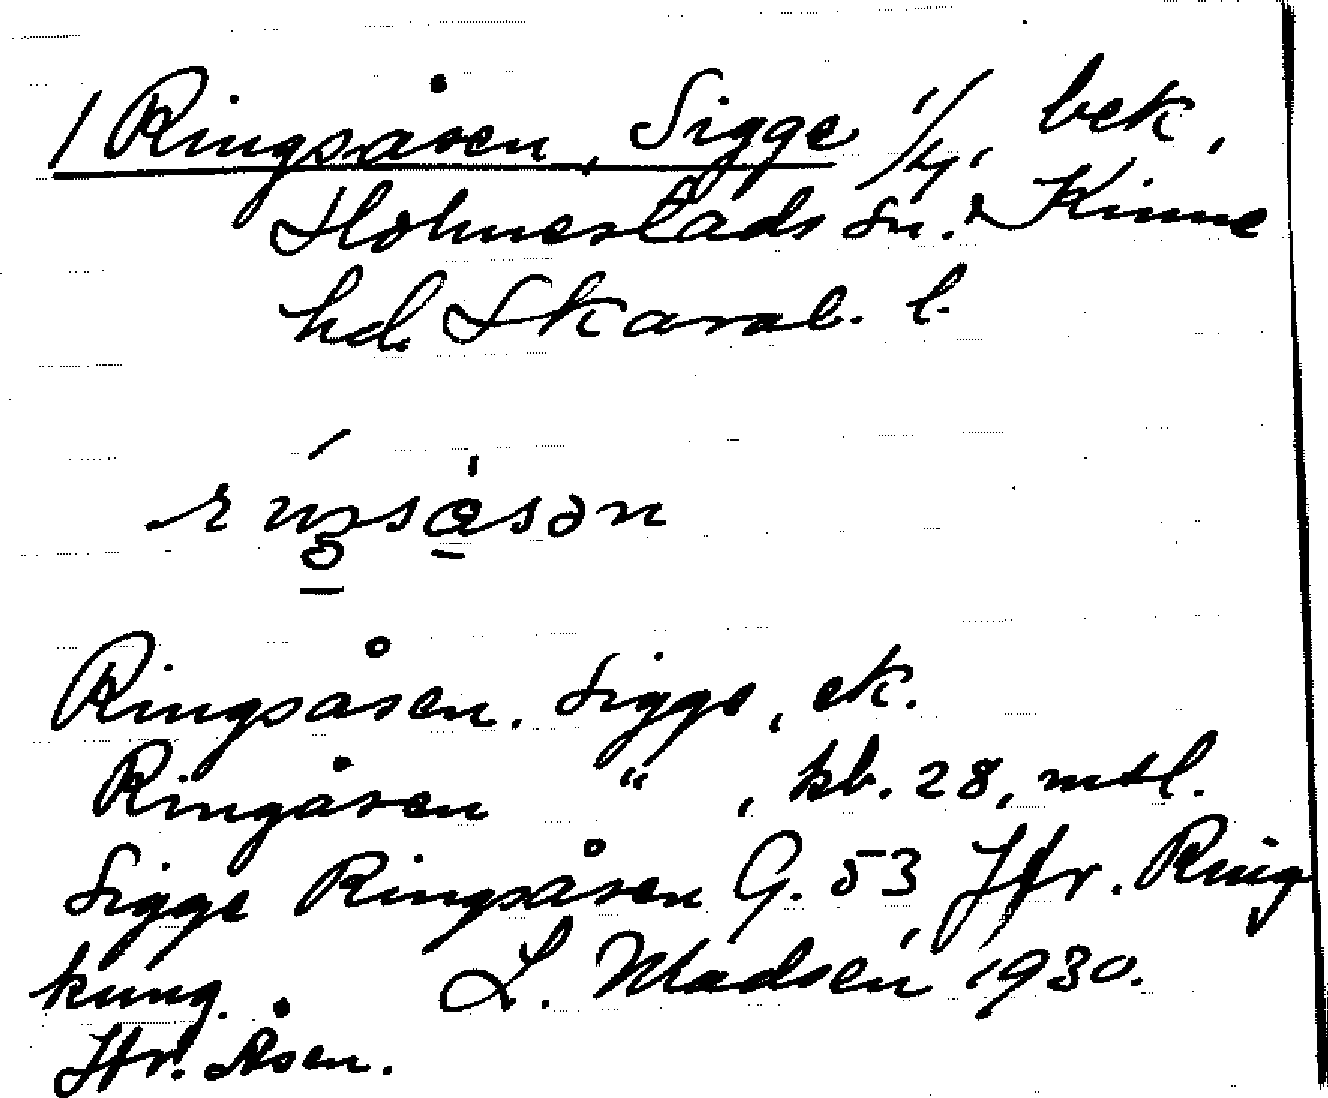 1 Ringsåsen, Sigge 1/4, bek,
Holmestads sn. Kinne
hd. Skarab. l.
Ringsåsen. Sigge, ek.
Ringåsen " , kb. 28, mtl.
Sigge Ringsåsen G. 53, Jfr. Ring
kung. L. Madsén 1930.
Jfr. Åsen.